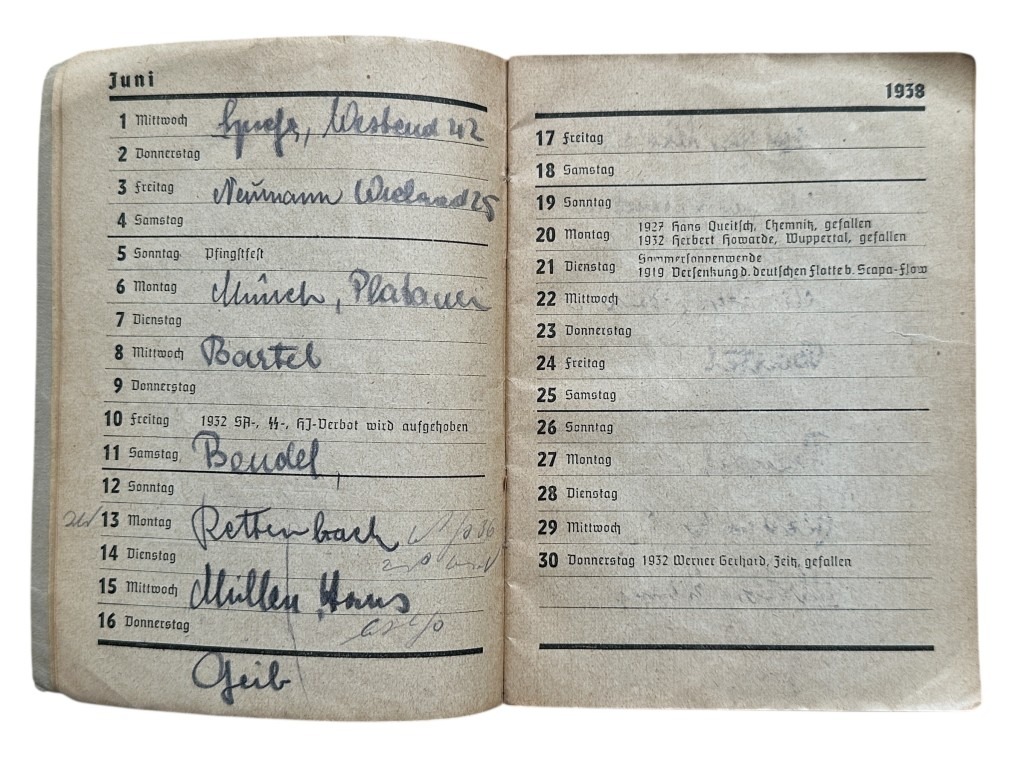 Juni
1 Mittwoch Spieß, Westend 42
2 Donnerstag
3 Freitag Neumann Wieland 25
4 Samstag
5 Sonntag Pfingstfest
6 Montag Münch, Platanen
7 Dienstag
8 Mittwoch Bartel
9 Donnerstag
10 Freitag 1932 SA-, SS-, HJ-Verbot wird aufgehoben
11 Samstag Bendel,
12 Sonntag
13 Montag Rettenbach
14 Dienstag
15 Mittwoch Müller Hans
16 Donnerstag
Geib
1938
17 Freitag
18 Samstag
19 Sonntag
20 Montag 1927 Hans Queitsch, Chemnitz, gefallen
1932 Herbert Howarde, Wuppertal, gefallen
21 Dienstag Sommersonnenwende
1919 Versenkung d. deutschen Flotte b. Scapa-Flow
22 Mittwoch
23 Donnerstag
24 Freitag
25 Samstag
26 Sonntag
27 Montag
28 Dienstag
29 Mittwoch
30 Donnerstag 1932 Werner Gerhard, Zeitz, gefallen